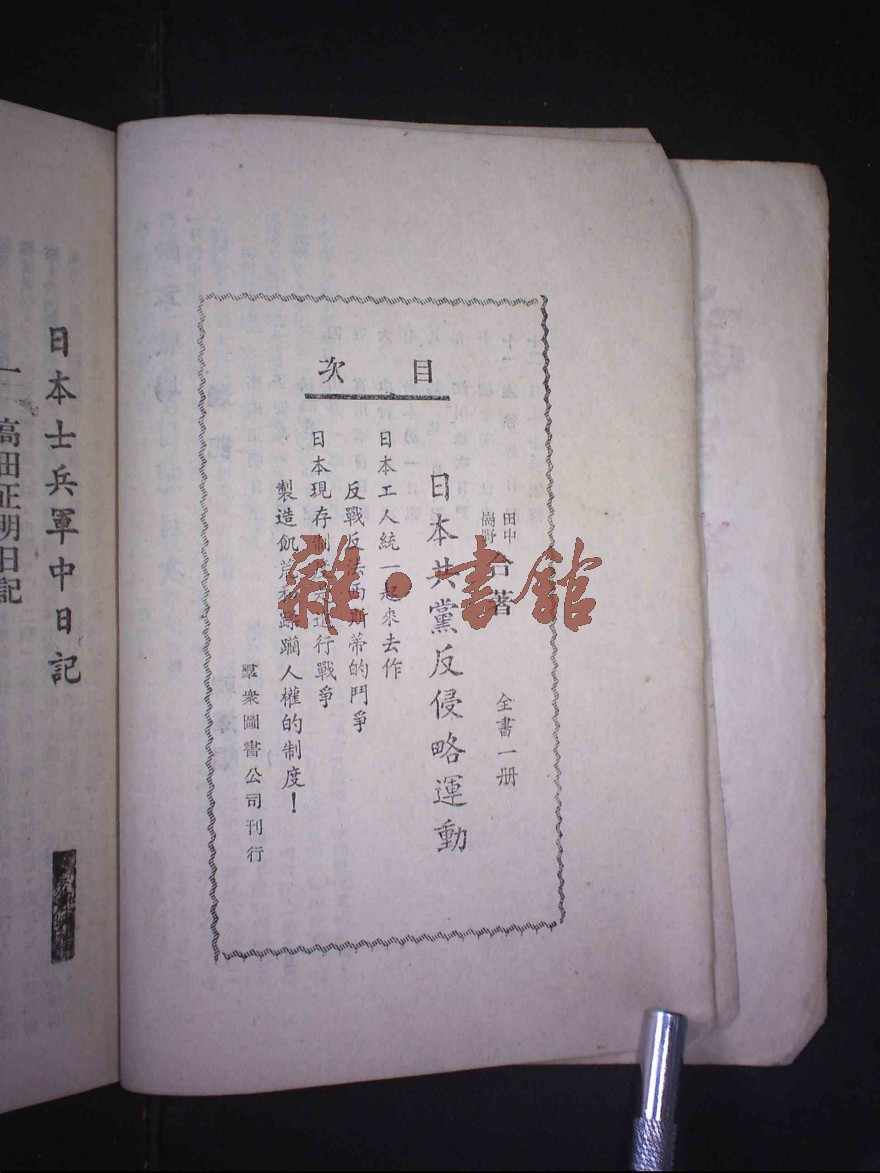 目次
田中
崗野
合著 全書一册
日本共黨反侵略運動
日本工人統一起來去作
反戰反法西斯蒂的鬥爭
日本現存制度是進行戰爭
製造飢荒和蹂躪人權的制度！
羣衆圖書公司刊行
日本士兵軍中日記
一 高田正明日記
雜·書館